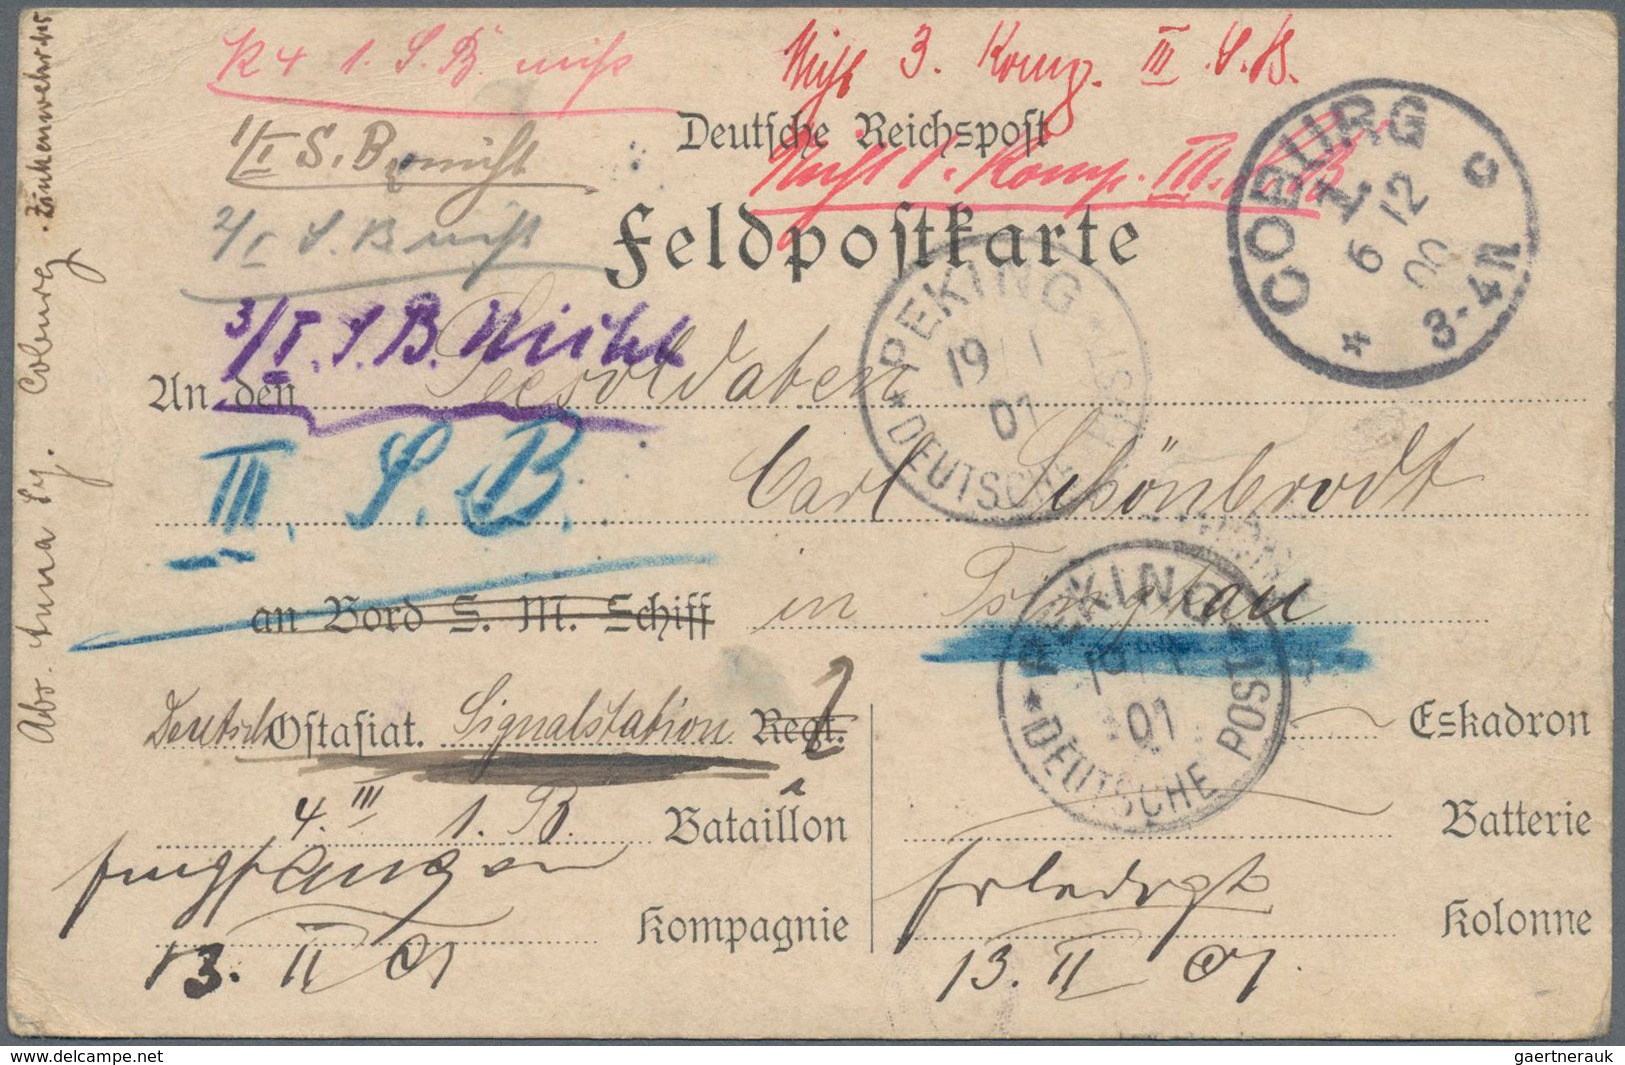 K 4 1. S. B. nicht
Nicht 3. Komp. III. S. B.
1/I S. B. nicht
Deutsche Reichspost
Nicht 1. Komp. III. S. B.
2/I S. B. nicht
Feldpostkarte
COBURG
1.
6 12
00
3-4N
* c
3/I. S. B. Nicht
PEKING
19 1
01
* DEUTSCHE POST *
An den Seesoldaten
III. S. B.
Carl Schönbrodt
an Bord S. M. Schiff in Tsingtau
PEKING
19 1
01
* DEUTSCHE POST *
Deutsch Ostasiat. Signalstation Regt.
Eskadron
4. III 1. B. Bataillon
Batterie
Kompagnie
Erledigt
Kolonne
13. II 01
13. II 01.
Abs. Anna Ey. Coburg. Zinkenwehr
delcampe.net
gaertnerauk